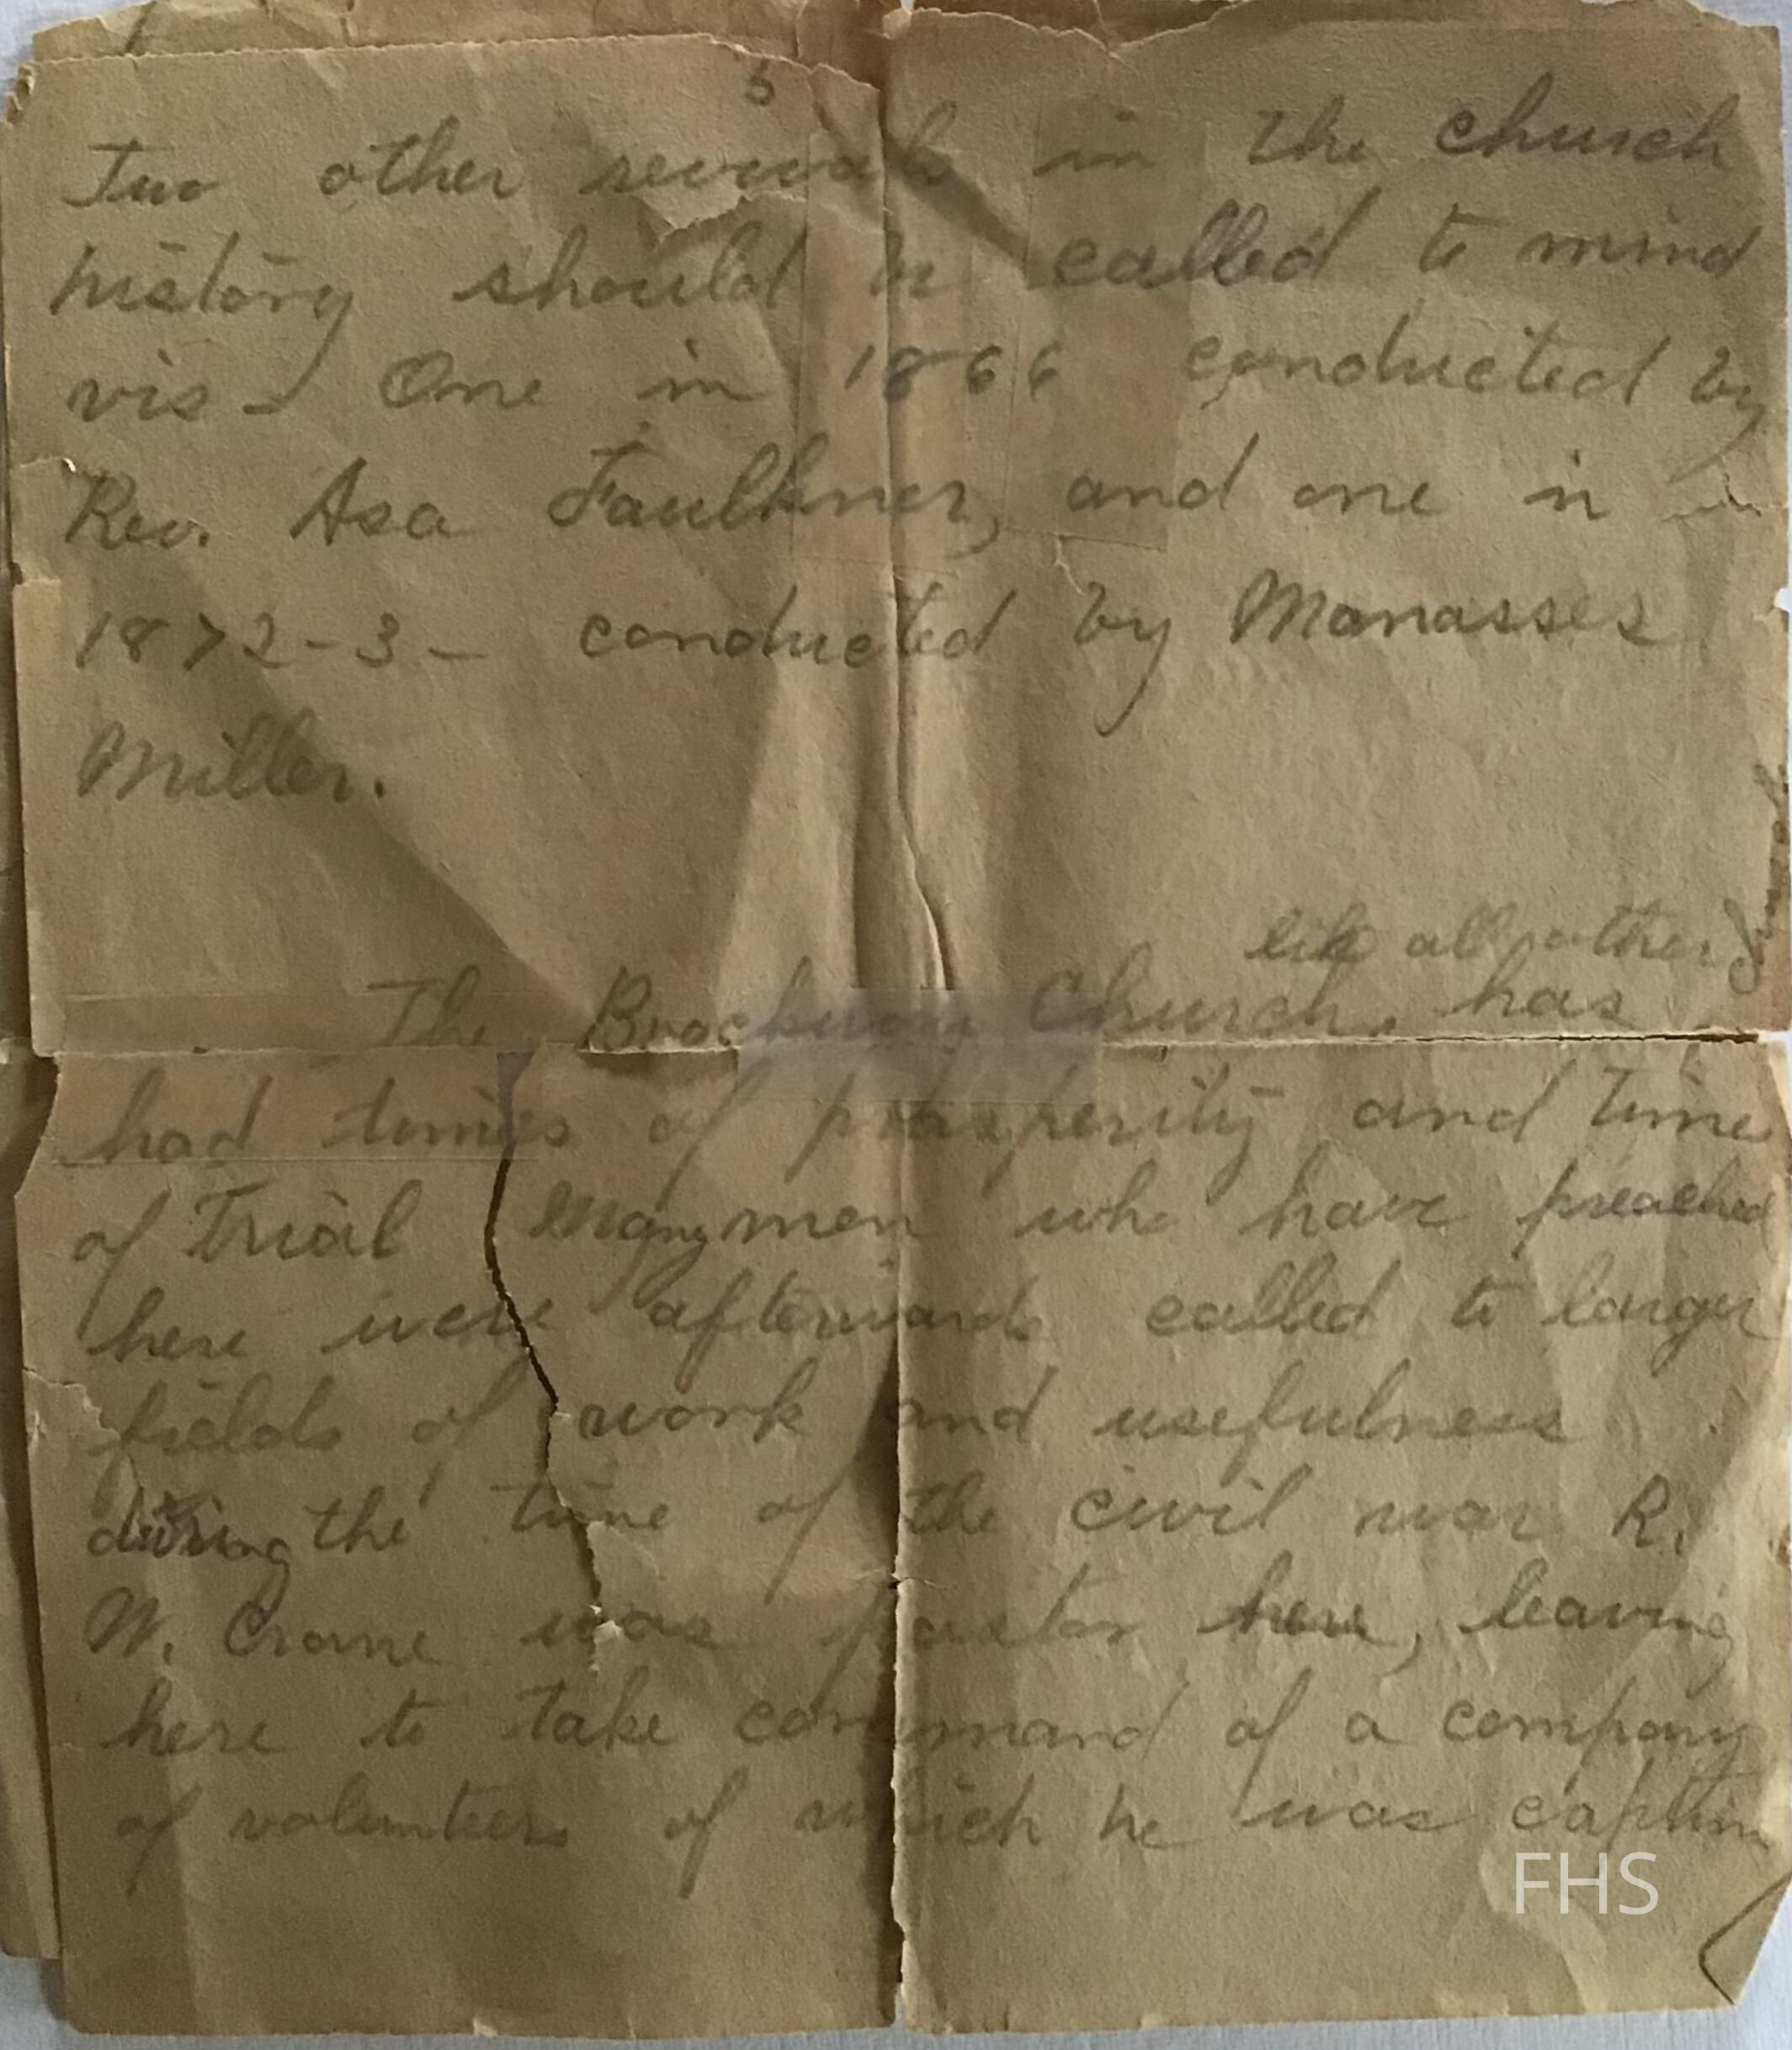 5
Two other revivals in the church
history should be called to mind
vis - One in 1866 conducted by
Rev. Asa Faulkner, and one in
1872-3- conducted by Manasses
Miller.
like all other
The Brockway Church, has
had times of prosperity and time
of Trial Many men who have preached
here were afterwards called to larger
fields of work and usefulness
during the time of the civil war R.
W. Crane was pastor here, leaving
here to take command of a company
of volunteers of which he was captain
FHS